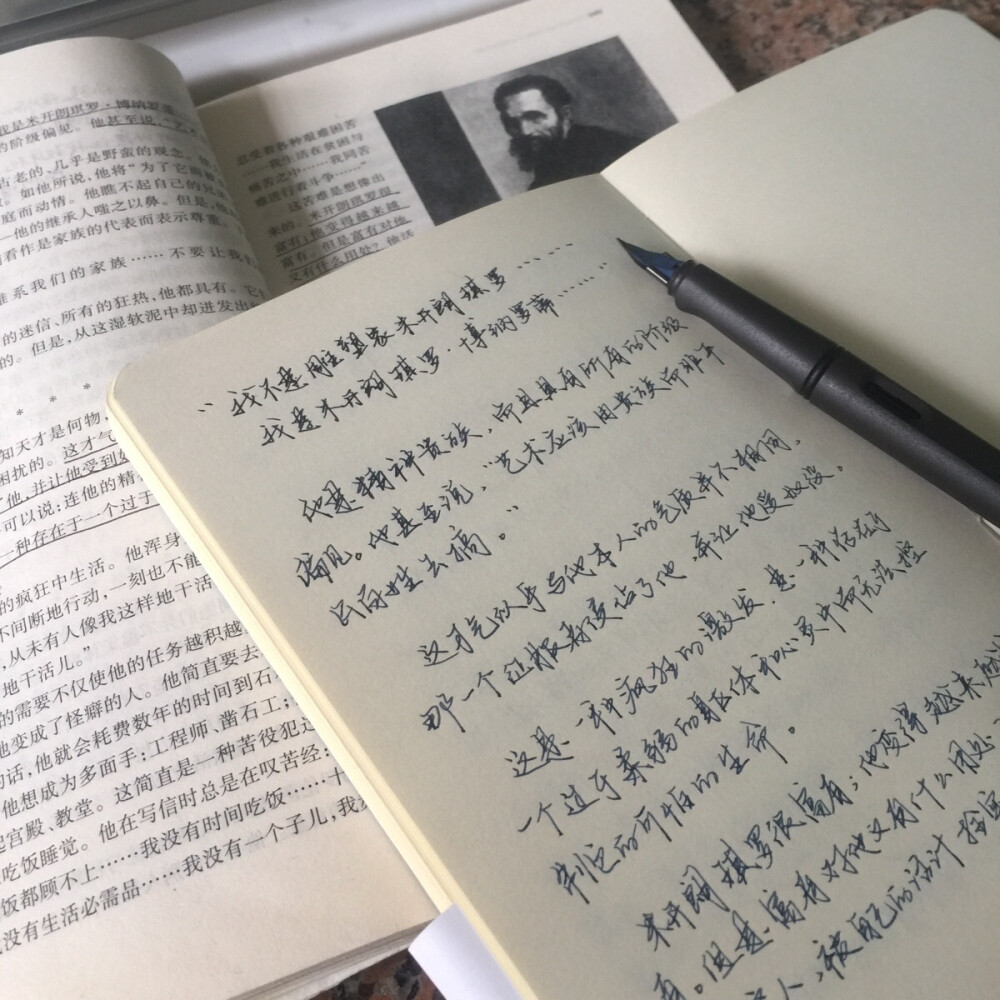 我是米开朗琪罗·博纳罗蒂
的阶级偏见。他甚至说,“艺术
古老的、几乎是野蛮的观念。
如他所说,他将“为了它
庭而动情。他瞧不起自己的兄弟
他的继承人嗤之以鼻。但是,他
看作是家族的代表而表示尊重。
系我们的家族……不要让我们
的迷信、所有的狂热,他都具有。它
的。但是,从这湿软泥中却迸发出
* * *
知天才是何物,
困扰的。这才气
了他,并让他受到奴
可以说:连他的精
一种存在于一个过于
的疯狂中生活。他浑身
不间断地行动,一刻也不能
,从未有人像我这样地干活
地干活儿。”
的需要不仅使他的任务越积越
他变成了怪癖的人。他简直要去
的话,他就会耗费数年的时间到石
他想成为多面手;工程师、凿石工;
起宫殿、教堂。这简直是一种苦役犯
吃饭睡觉。他在写信时总是在叹苦经:
饭都顾不上……我没有时间吃饭……十
没有生活必需品……我没有一个子儿,我
忍受着各种艰难困苦
……我生活在贫困与
痛苦之中……我同苦
难进行着斗争……”
这苦难是想像出
来的。米开朗琪罗很
富有;他变得越来越
富有。但是富有对他
又有什么用处?他活
“我不是雕塑家米开朗琪罗……
我是米开朗琪罗·博纳罗蒂……
他是精神贵族,而且具有所有的阶级
偏见。他甚至说,“艺术应该由贵族而非平
民百姓去搞。”
这才气似乎与他本人的气质并不相同,
那一个征服者侵占了他,并让他受奴役。
这是一种疯狂的激发,是一种存在于
一个过于柔弱的躯体和心灵中而无法控
制它的可怕的生命。
米开朗琪罗很富有;他变得越来越富
有。但是富有对他又有什么用处?
人,被自己的活计拴